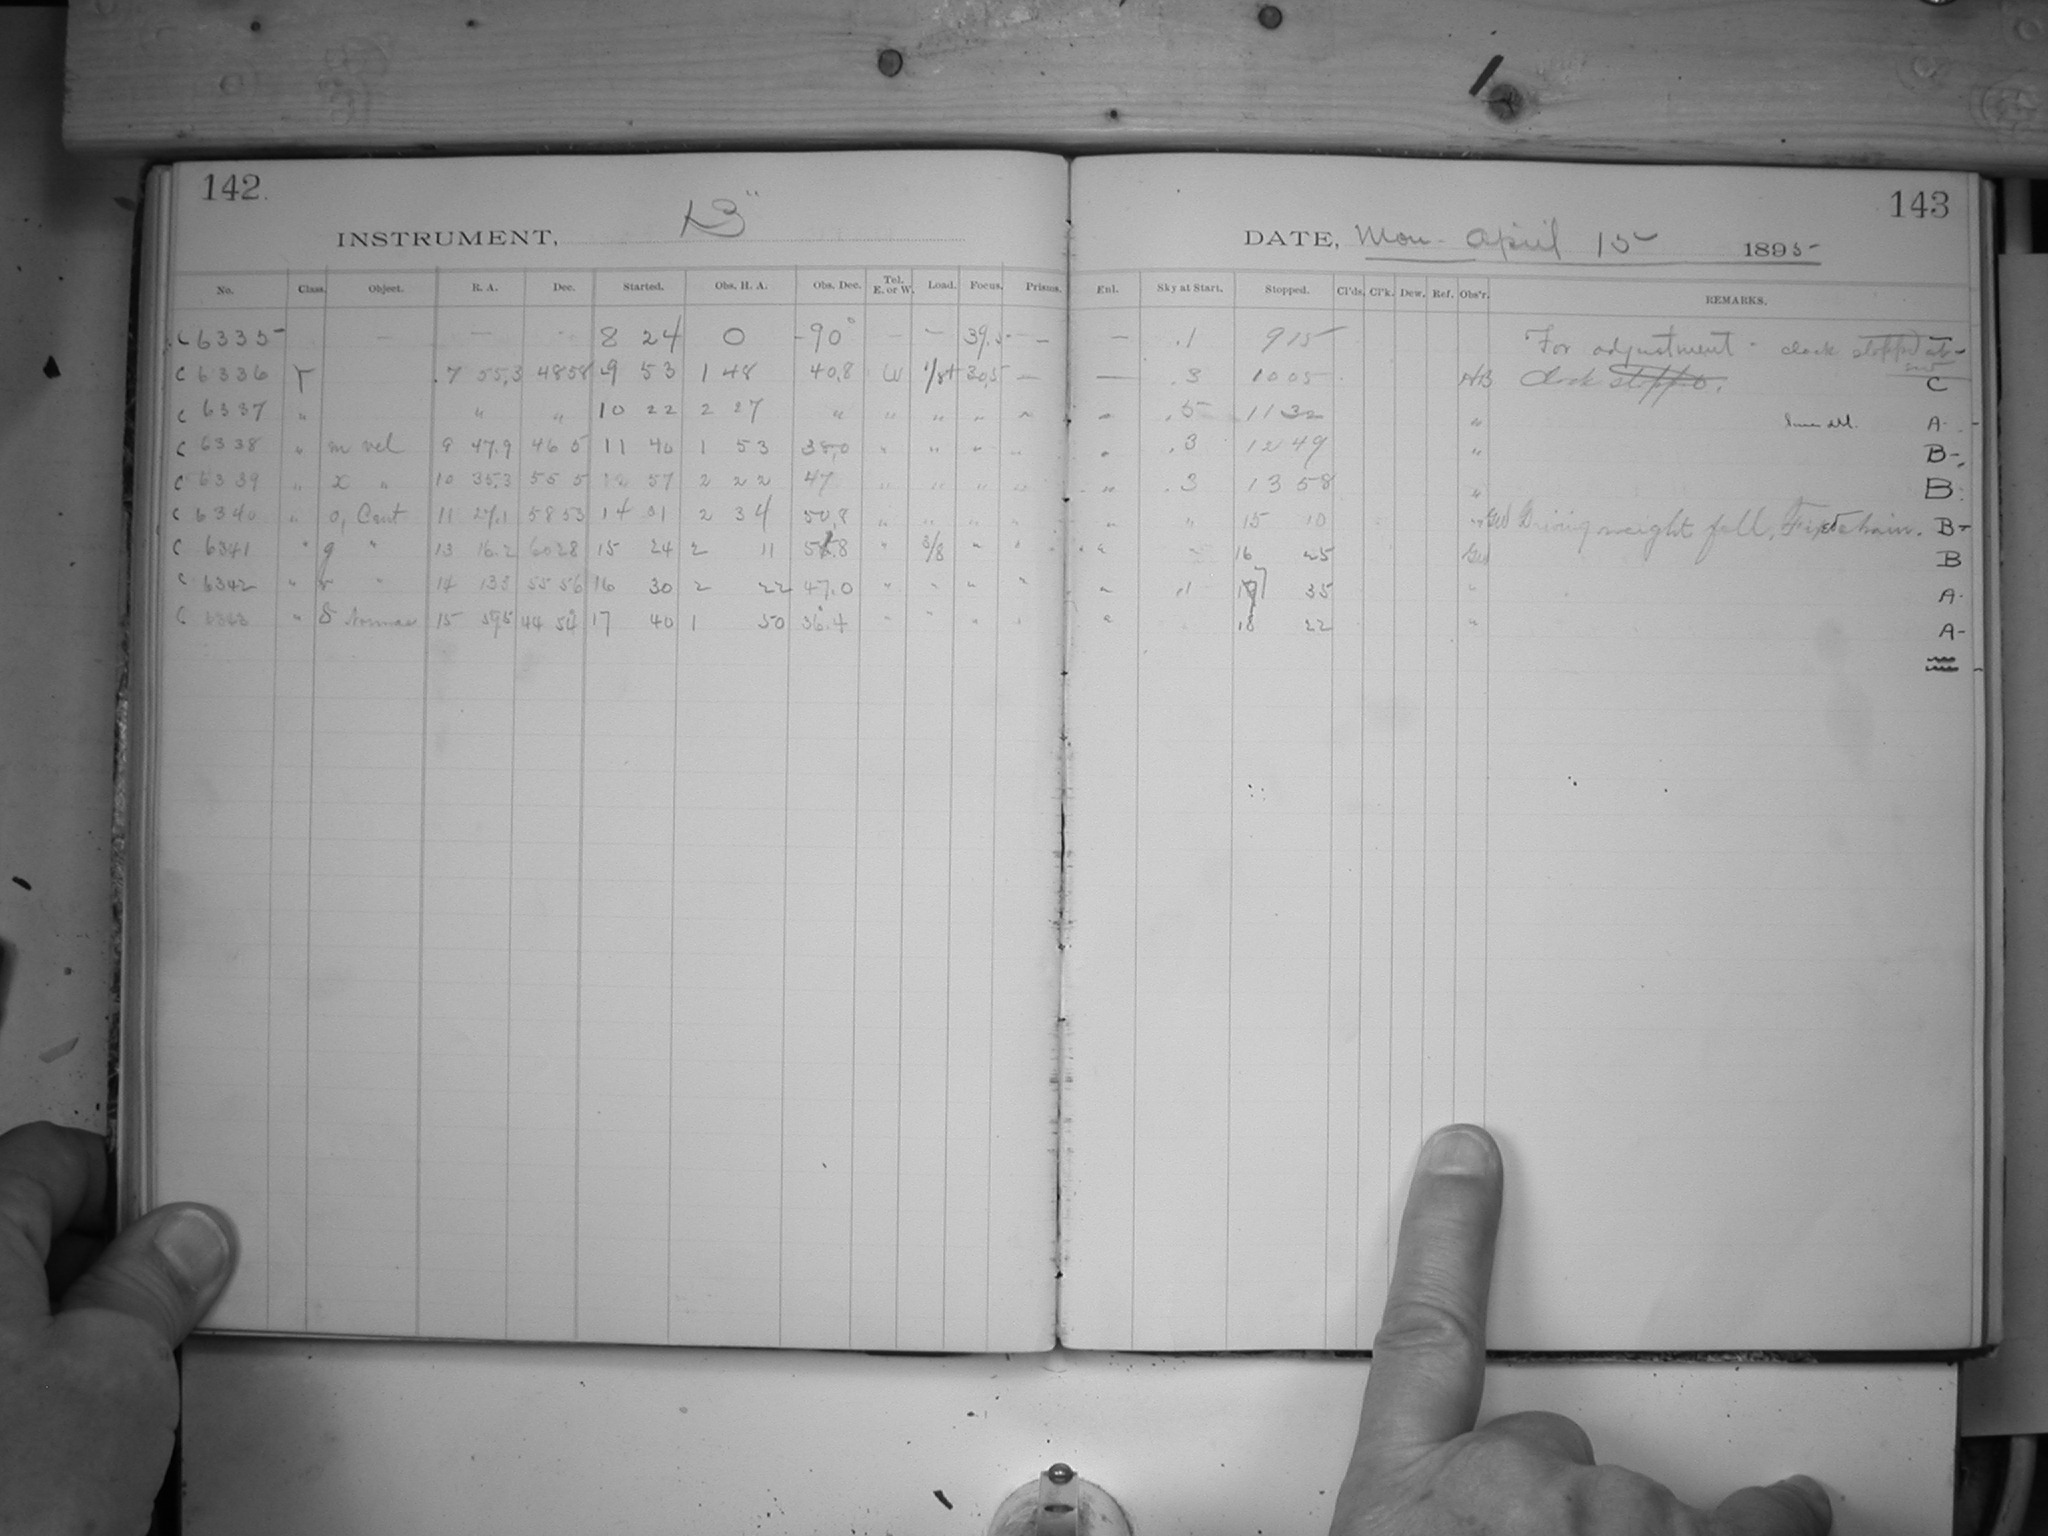 142.
INSTRUMENT, 13"
No. Class. Object. R. A. Dec. Started. Obs. H. A. Obs. Dec. Tel. E. or W. Load. Focus. Prisms.
C 6335 — — - 8 24 0 -90° — — 39.5 —
C 6336 r 7 55.3 48 58 9 53 1 48 40.8 W 1/8+ 30.5 —
C 6337 " " " 10 22 2 27 " " " " "
C 6338 " m vel 9 47.9 46 5 11 40 1 53 38.0 " " " "
C 6339 " x " 10 35.3 55 5 12 57 2 22 47 " " " "
C 6340 " o, Cent 11 27.1 58 53 14 01 2 34 50.8 " " " "
C 6341 " g " 13 16.2 60 28 15 24 2 11 " 3/8 " "
C 6342 " v " 14 13.5 55 56 16 30 2 22 47.0 " " " "
C 6343 " δ Normae 15 59.5 44 54 17 40 1 50 36.4 " " " "
143
DATE, Mon- April 15 1895
Enl. Sky at Start. Stopped. Cl'ds. Cl'k. Dew. Ref. Obs'r. REMARKS.
— .1 9 15 For adjustment - clock stopped at
— .3 10 05 AB Clock stopped. C
" .5 11 32 " A-
" .3 12 49 " B-
" .3 13 58 " B
" " 15 10 " Driving weight fell. Fixed chain. B-
" " 16 25 B
" .1 17 35 " A-
" 18 22 " A-